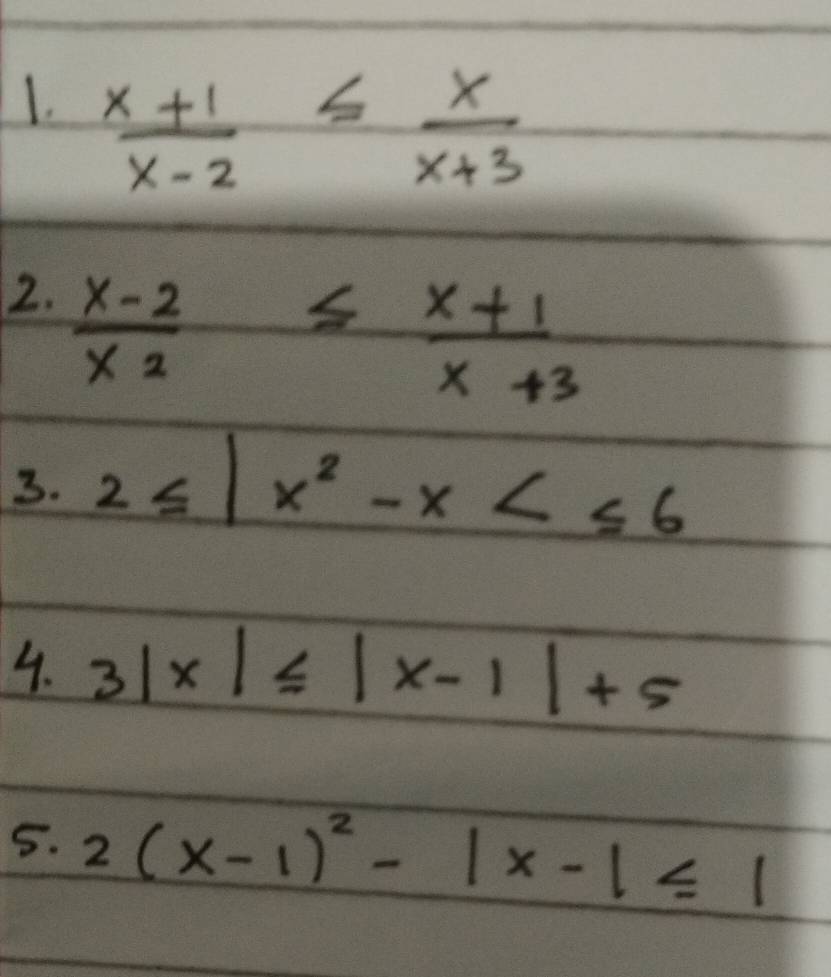 1. x+1/x-2 ≤ x/x+3
2. x-2/x2 ≤ x+1/x+3
3. 2≤|x²-x< ≤6
4. 3|x|≤|x-1|+5
5. 2(x-1)²-|x-|≤1